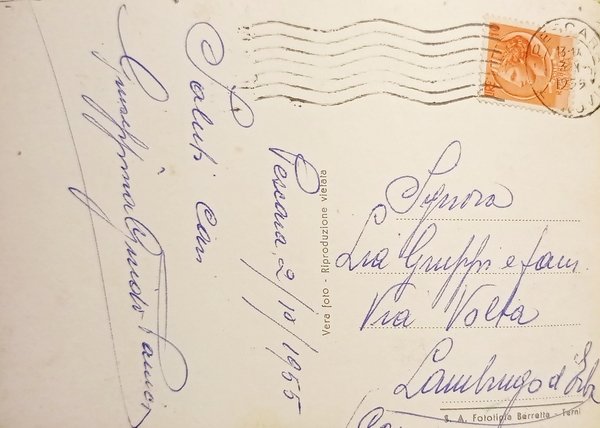 Pescara, 2/10/1955
Saluti cari
Giuseppina Guido
Vera foto - Riproduzione vietata
PESCARA
1955
Signora
Lia Gruppi e fam
Via Volta
Lambrugo d'Erba
S. A. Fototipia Berretta - Terni